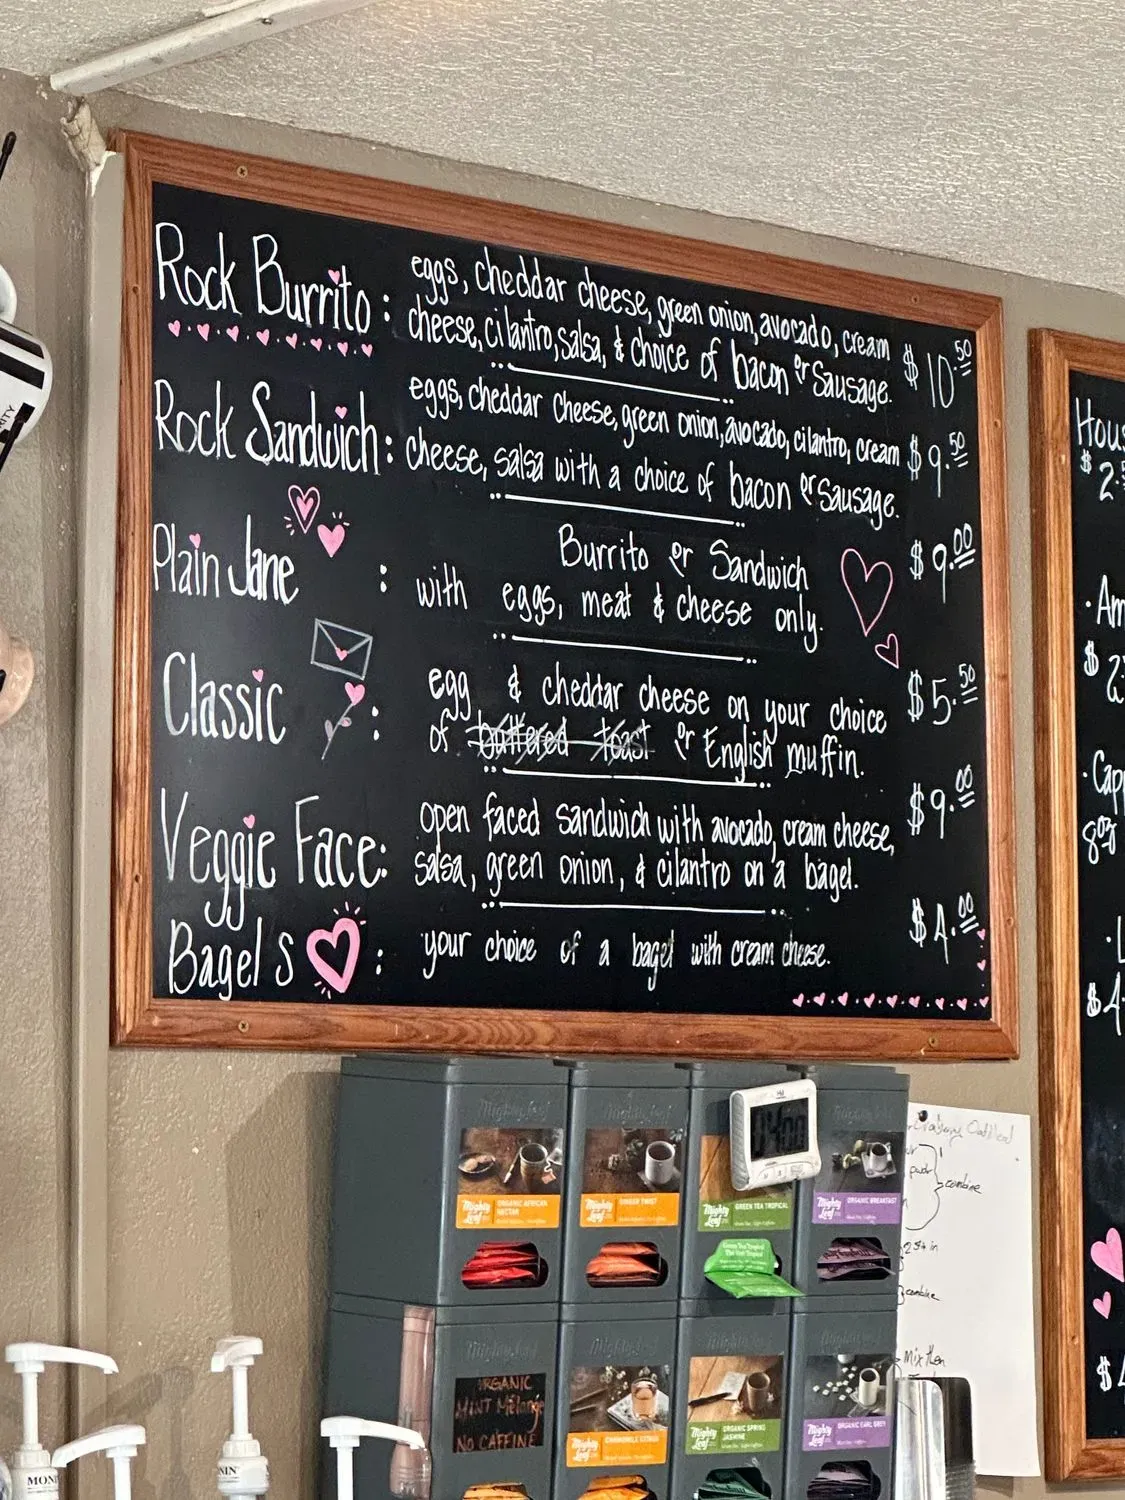 Rock Burrito : eggs, cheddar cheese, green onion, avocado, cream
cheese, cilantro, salsa, & choice of bacon or sausage. $10.50
Rock Sandwich : eggs, cheddar cheese, green onion, avocado, cilantro, cream
cheese, salsa with a choice of bacon or sausage. $9.50
Plain Jane : Burrito or Sandwich
with eggs, meat & cheese only. $9.00
Classic : egg & cheddar cheese on your choice
of buttered toast or English muffin. $5.50
Veggie Face: open faced sandwich with avocado, cream cheese,
salsa, green onion, & cilantro on a bagel. $9.00
Bagels : your choice of a bagel with cream cheese. $4.00
Hous
$2.5
· Am
$2
· Cap
8oz
$4
Mighty Leaf
Mighty Leaf
Mighty Leaf
Mighty Leaf
ORGANIC AFRICAN NECTAR
GINGER TWIST
GREEN TEA TROPICAL
ORGANIC BREAKFAST
Green Tea Tropical
combine
combine
Mix then
ORGANIC
MINT Mélange
NO CAFFEINE
Mighty Leaf
Mighty Leaf
Mighty Leaf
CHAMOMILE CITRUS
ORGANIC SPRING JASMINE
ORGANIC EARL GREY
MONI
NIN